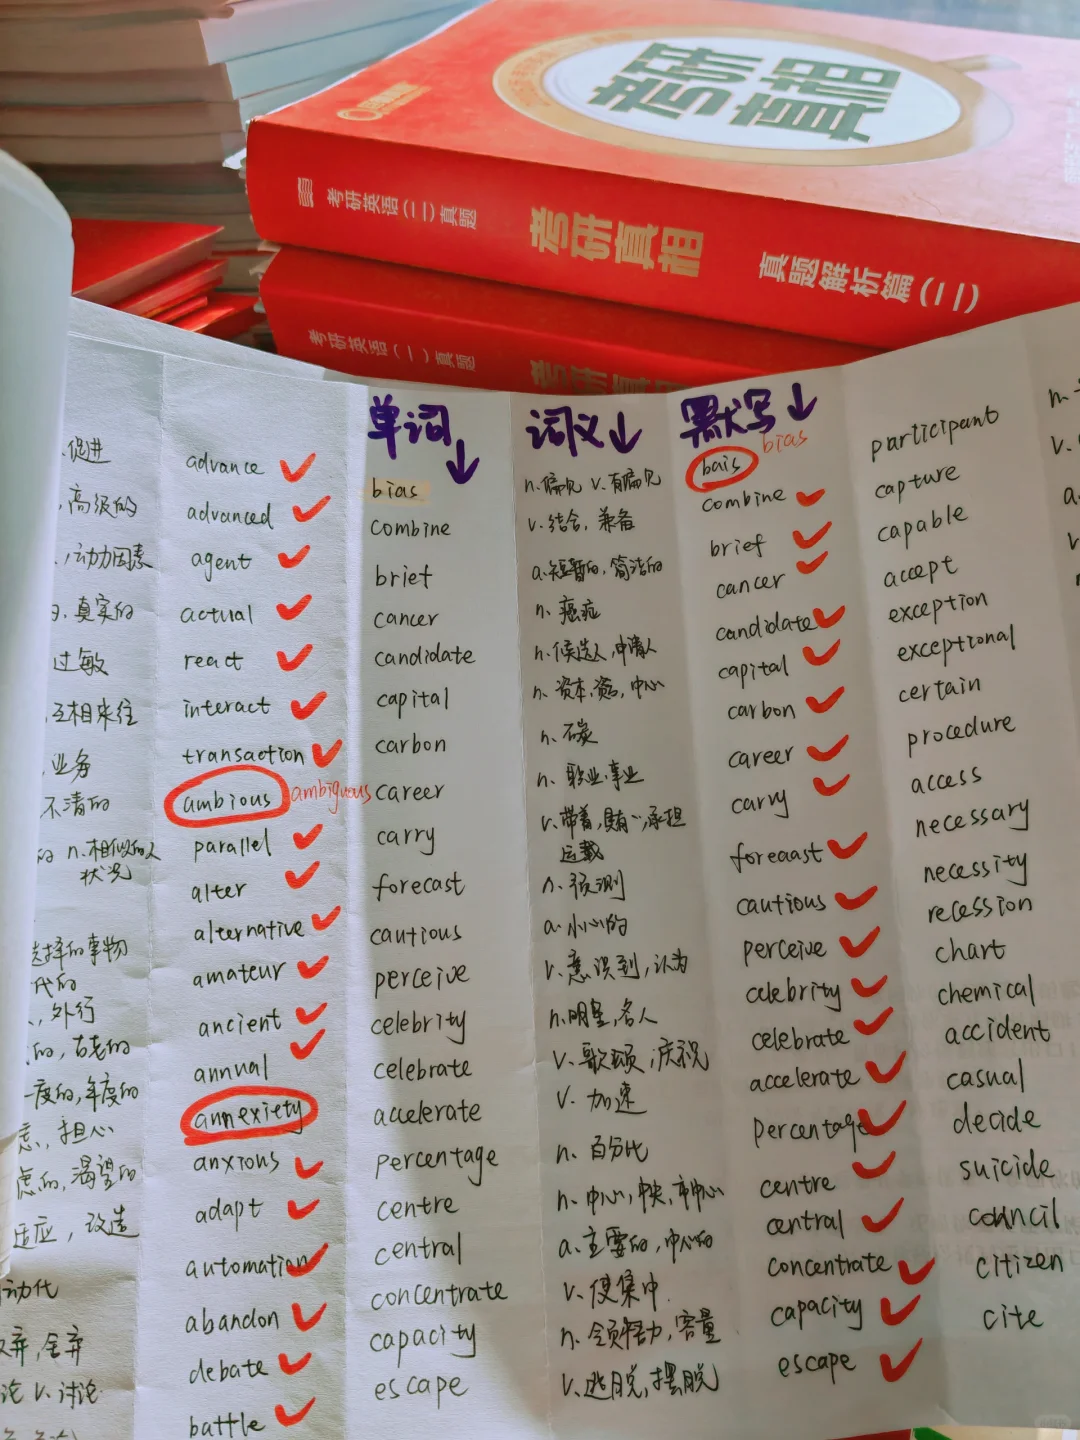 考研真相
考研英语(二)真题
考研真相
真题解析篇(二)
考研英语(一)真题
考研真相
促进
高级的
动力因素
真实的
过敏
互相来往
业务
不清的
的 n.相似的人
状况
选择的事物
代的
外行
的，古老的
一度的，年度的
虑，担心
虑的，渴望的
适应，改造
动化
弃，舍弃
论 v.讨论
advance
advanced
agent
actual
react
interact
transaction
ambious ambiguous
parallel
alter
alternative
amateur
ancient
annual
annexiety
anxious
adapt
automation
abandon
debate
battle
单词
bias
combine
brief
cancer
candidate
capital
carbon
career
carry
forecast
cautious
perceive
celebrity
celebrate
accelerate
percentage
centre
central
concentrate
capacity
escape
词义
n.偏见 v.有偏见
v.结合，兼备
a.短暂的，简洁的
n.癌症
n.候选人，申请人
n.资本，资金，中心
n.碳
n.职业，事业
v.带着，具有，承担
运载
n.预测
a.小心的
v.意识到，认为
n.明星，名人
v.歌颂，庆祝
v.加速
n.百分比
n.中心，中央，市中心
a.主要的，中心的
v.使集中
n.领悟力，容量
v.逃脱，摆脱
默写
bais bias
combine
brief
cancer
candidate
capital
carbon
career
carry
foreaast
cautious
perceive
celebrity
celebrate
accelerate
percentage
centre
central
concentrate
capacity
escape
participant
capture
capable
accept
exception
exceptional
certain
procedure
access
necessary
necessity
recession
chart
chemical
accident
casual
decide
suicide
council
citizen
cite
n.
v.
a.
v